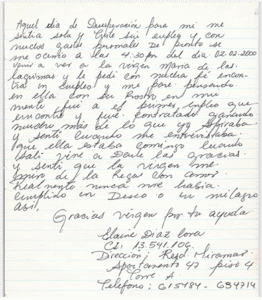 Aquel dia de Desesperación para mi me
sentia sola y triste sin empleo y con
muchos gastos personales De pronto se
me ocurrio a las 4:30 pm del dia 02-02-2000
venir a ver a la virgen Maria de las
lagrimas y le pedi con mucha fé encon
trar un empleo y me fui pensando
en ella con su Rostro en mi
mente fui a el primer empleo que
encontre y fui contratada ganando
nuestro más de lo que yo esperaba
y senti cuando me entrevistaba
que ella estaba conmigo cuando
Sali vine a Darle las gracias
y senti que la virgen me
miro de la Regaz con amor
Realmente nunca me habia
cumplido un Deseo o un milagro
asi.
Gracias virgen por tu ayuda
Elaine Diaz Lora
C.I: 13.541.106
Direccion: Resd. Miramar
Apartamento 47 piso 4
Torre A
Telefono: 615484 - 634714